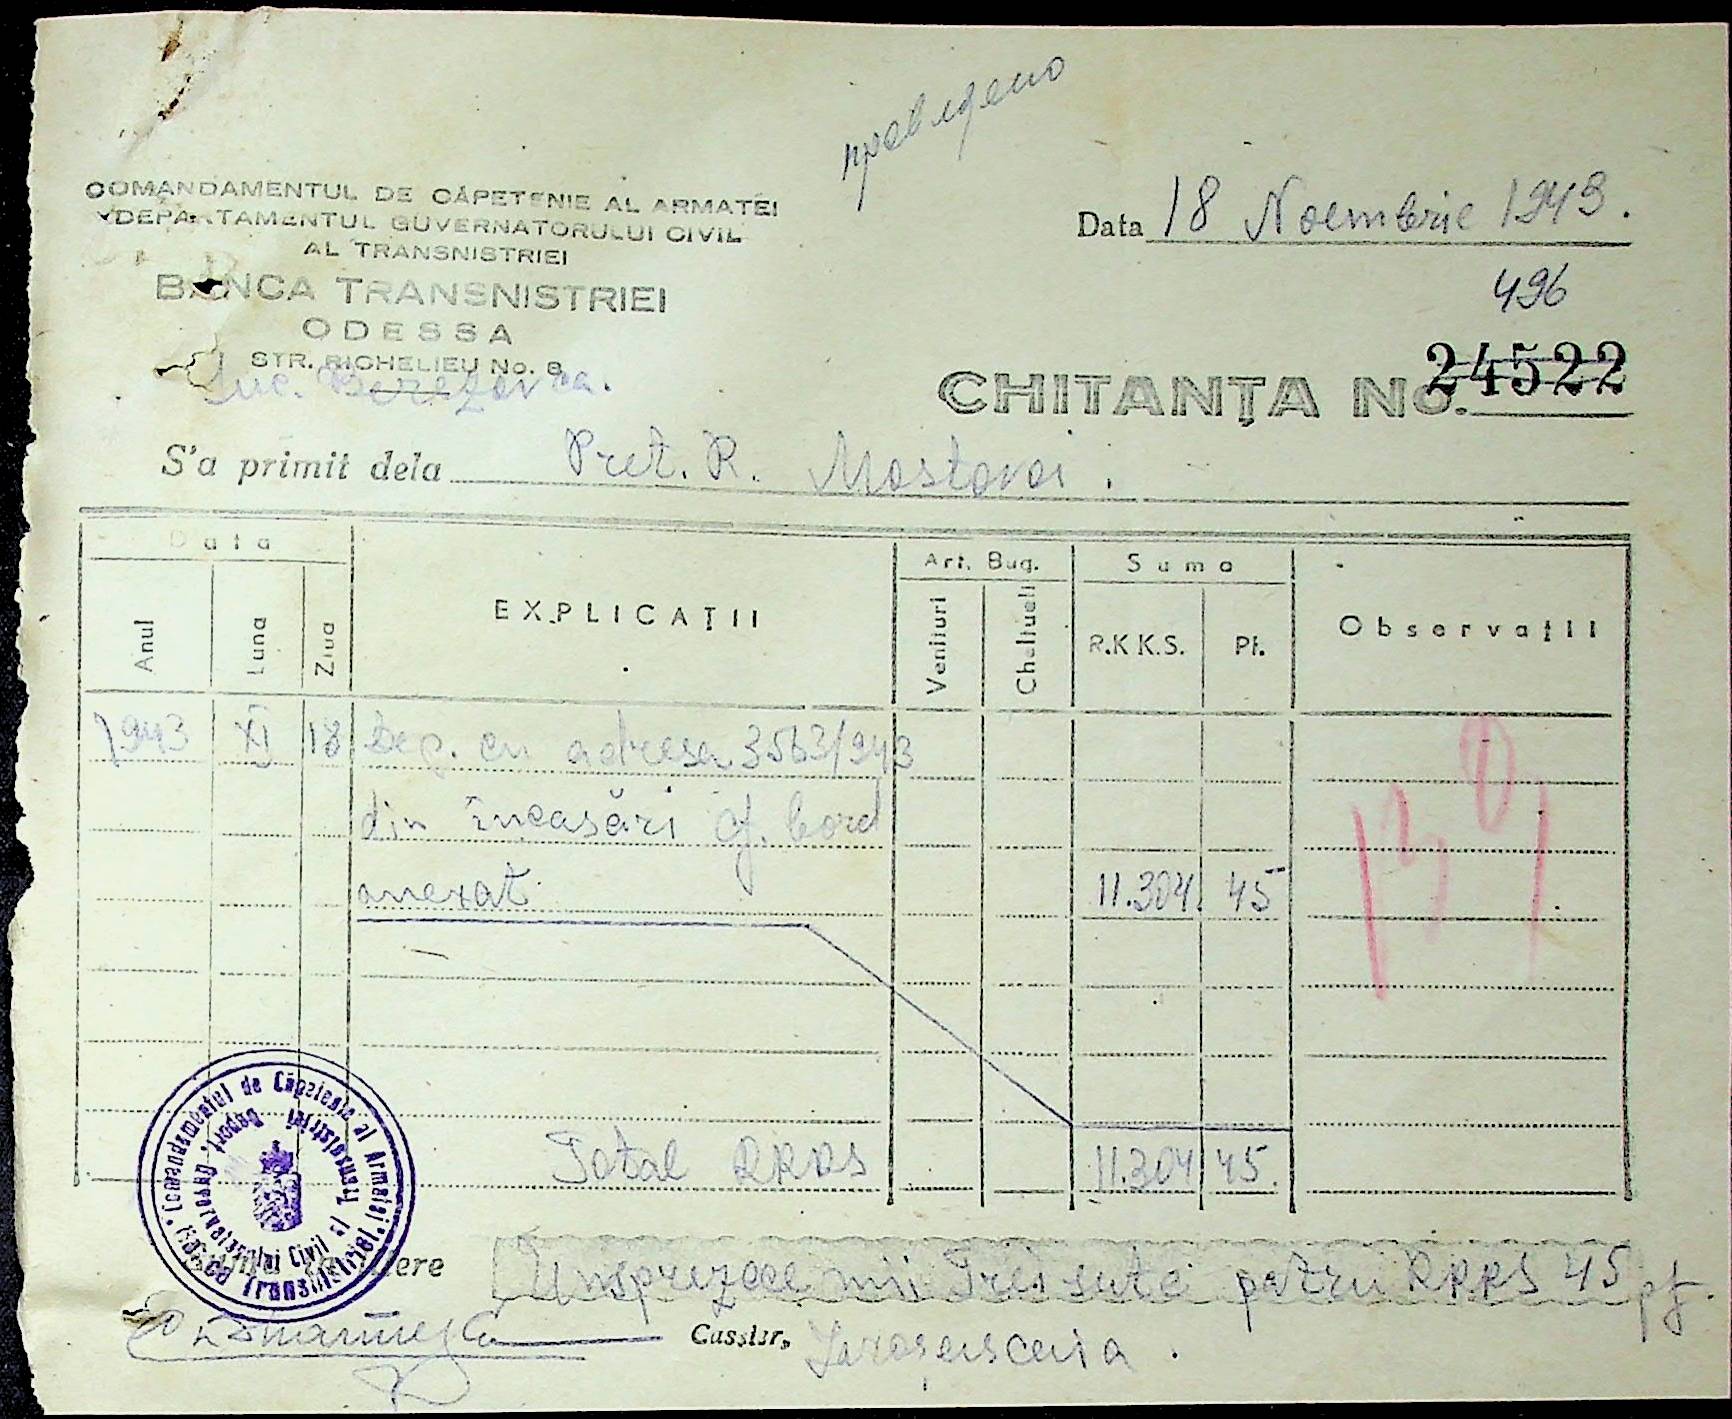 проведено
COMANDAMENTUL DE CĂPETENIE AL ARMATEI
DEPARTAMENTUL GUVERNATORULUI CIVIL
AL TRANSNISTRIEI
BANCA TRANSNISTRIEI
ODESSA
STR. RICHELIEU No. 8
Suc. Berezovca.
Data 18 Noembrie 1943.
496
CHITANŢA No. 24522
S'a primit dela Pret. R. Mostovoi.
Data EXPLICAŢII Art. Bug. Suma Observaţii
Anul Luna Ziua Venituri Cheltueli R.K K.S. Pf.
1943 XI 18 Dep. cu adresa 3563/943
din încasări cf. bord
anexat 11.304 45
Total RKKS 11.304 45
Comandamentul de Căpetenie al Armatei
Depart. Guvernatorului Civil al Transnistriei
Banca Transnistriei
Unsprezece mii Trei sute patru RKKS 45 pf.
Cassier,